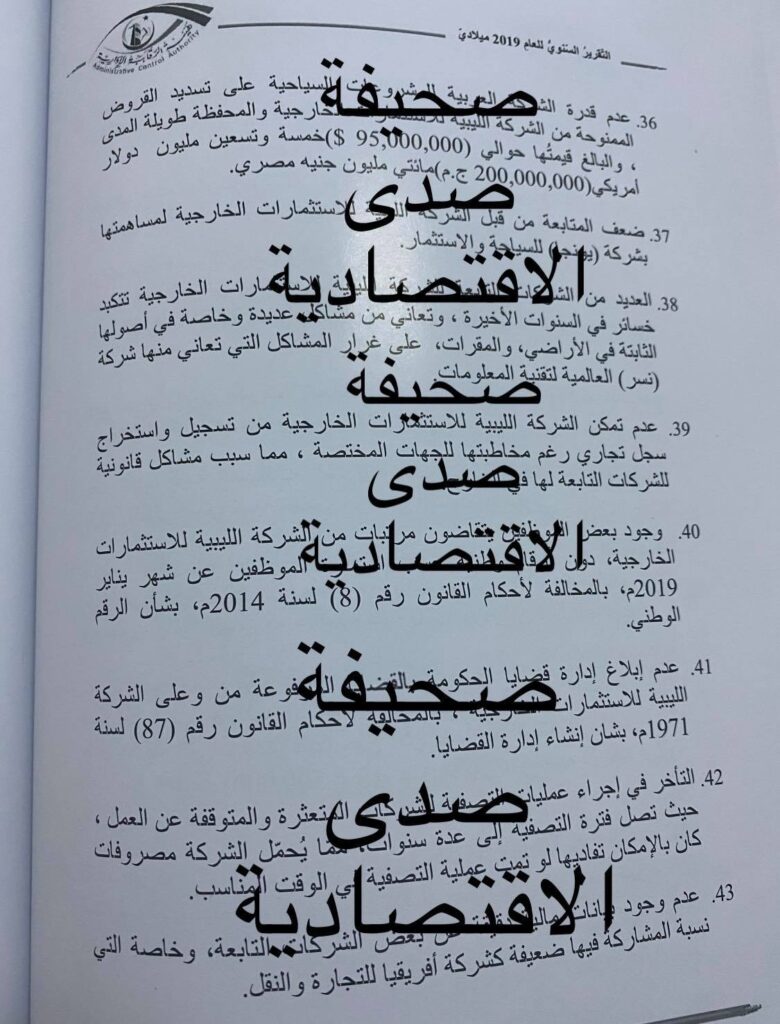 هيئة الرقابة الإدارية
Administrative Control Authority
التقرير السنوي للعام 2019 ميلادي
36. عدم قدرة الشركة العربية للمشروعات السياحية على تسديد القروض
الممنوحة من الشركة الليبية للاستثمارات الخارجية والمحفظة طويلة المدى
، والبالغ قيمتُها حوالي (95,000,000 $)خمسة وتسعين مليون دولار
أمريكي(200,000,000 ج.م)مائتي مليون جنيه مصري.
37. ضعف المتابعة من قبل الشركة الليبية للاستثمارات الخارجية لمساهمتها
بشركة للسياحة والاستثمار.
38. العديد من الشركات التابعة للشركة الليبية للاستثمارات الخارجية تتكبد
خسائر في السنوات الأخيرة ، وتعاني من مشاكل عديدة وخاصة في أصولها
الثابتة في الأراضي، والمقرات، على غرار المشاكل التي تعاني منها شركة
(نسر) العالمية لتقنية المعلومات
39. عدم تمكن الشركة الليبية للاستثمارات الخارجية من تسجيل واستخراج
سجل تجاري رغم مخاطبتها للجهات المختصة ، مما سبب مشاكل قانونية
للشركات التابعة لها في
40. وجود بعض الموظفين يتقاضون مرتبات من الشركة الليبية للاستثمارات
الخارجية، دون الموظفين عن شهر يناير
2019م، بالمخالفة لأحكام القانون رقم (8) لسنة 2014م، بشأن الرقم
الوطني.
41. عدم إبلاغ إدارة قضايا الحكومة بالقضايا المرفوعة من وعلى الشركة
الليبية للاستثمارات الخارجية ، بالمخالفة لأحكام القانون رقم (87) لسنة
1971م، بشان إنشاء إدارة القضايا.
42. التأخر في إجراء عمليات التصفية للشركات المتعثرة والمتوقفة عن العمل ،
حيث تصل فترة التصفية إلى عدة سنوات، مما يُحمّل الشركة مصروفات
كان بالإمكان تفاديها لو تمت عملية التصفية في الوقت المناسب.
43. عدم وجود بيانات مالية عن بعض الشركات التابعة، وخاصة التي
نسبة المشاركة فيها ضعيفة كشركة أفريقيا للتجارة والنقل.
صحيفة
صدى
الاقتصادية
صحيفة
صدى
الاقتصادية
صحيفة
صدى
الاقتصادية